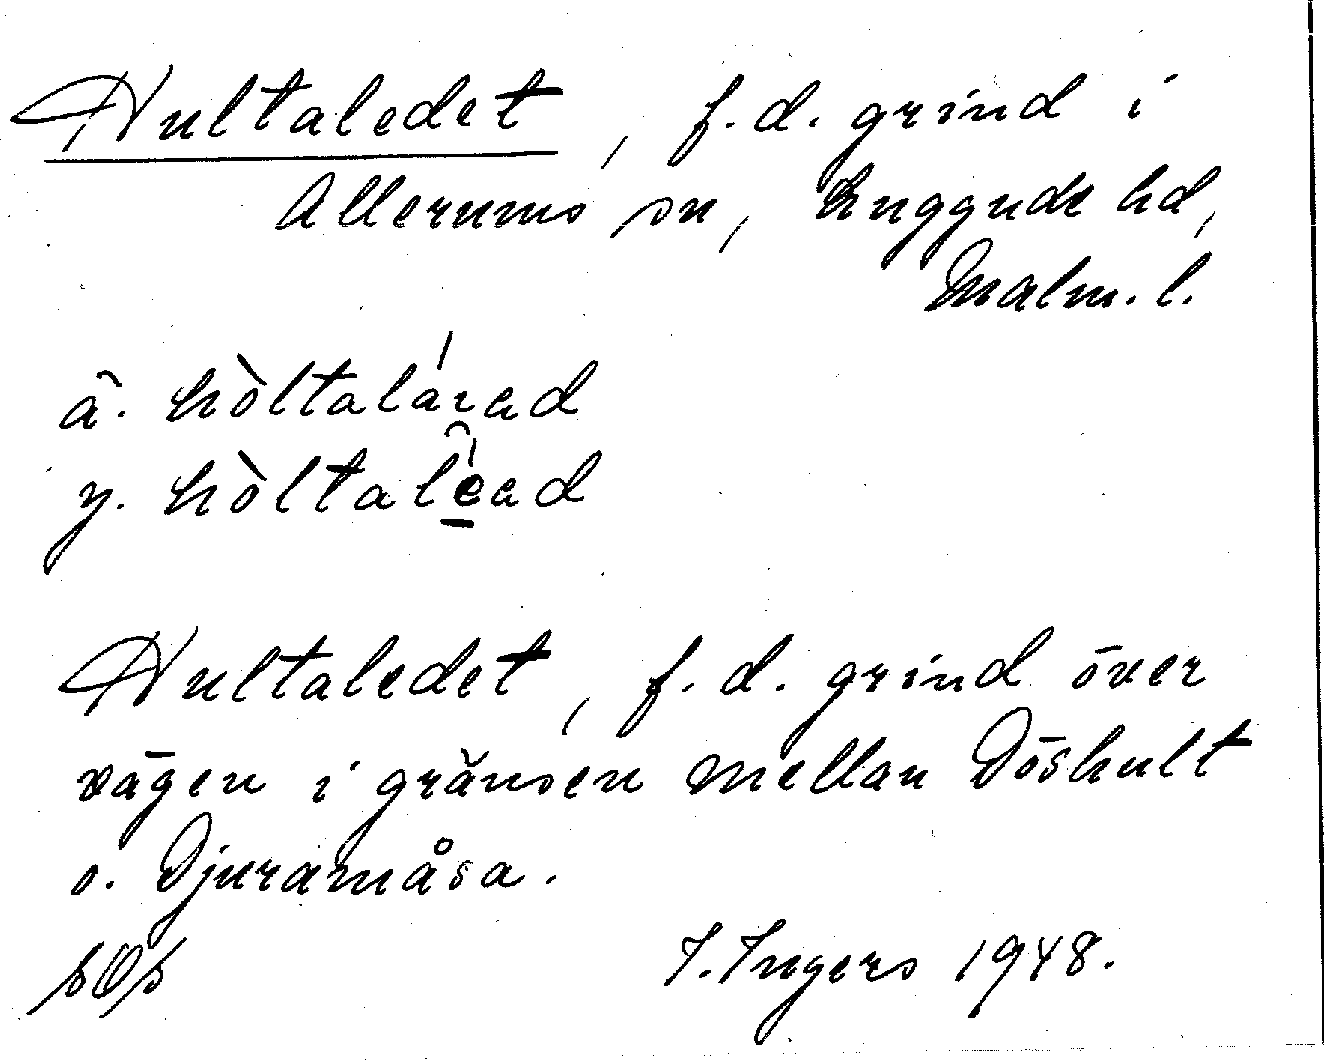 Hultaledet, f.d. grind i
Allerums sn, Luggude hd,
Malm. l.
â. hòltaláɪad
y. hòltalêad
Hultaledet, f.d. grind över
vägen i gränsen mellan Döshult
o. Djuramåsa.
sOs I. Ingers 1948.